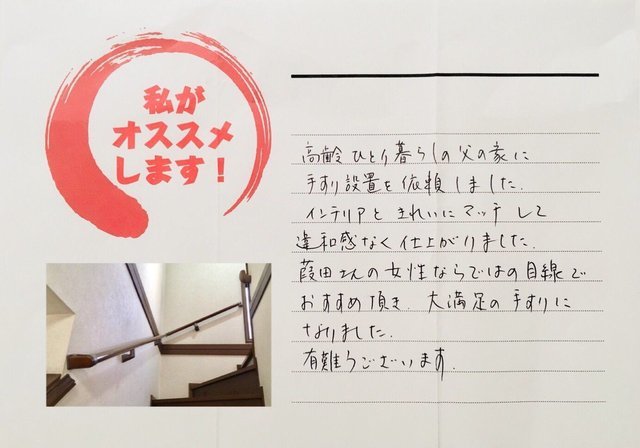 私が
オススメ
します!
高齢ひとり暮らしの父の家に
手すり設置を依頼しました。
インテリアときれいにマッチして
違和感なく仕上がりました。
葭田さんの女性ならではの目線で
おすすめ頂き、大満足の手すりに
なりました。
有難うございます。